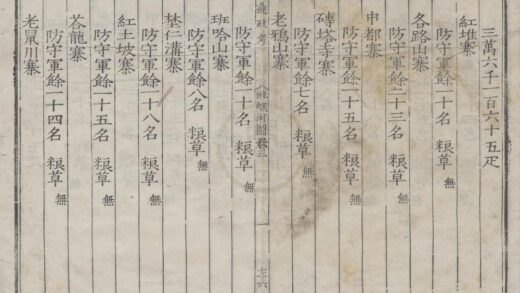 三萬六千一百六十五疋
紅堆寨
防守軍餘二十名 粮草無
各路山寨
防守軍餘二十三名 粮草無
申都寨
防守軍餘一十五名 粮草無
磚塔寺寨
防守軍餘七名 粮草無
老鴉山寨
邊政考 洮岷河圖卷三
防守軍餘一十名 粮草無
班哈山寨
防守軍餘八名 粮草無
仁溝寨
防守軍餘一十八名 粮草無
紅土坡寨
防守軍餘一十五名 粮草無
答龍寨
防守軍餘一十四名 粮草無
老鼠川寨